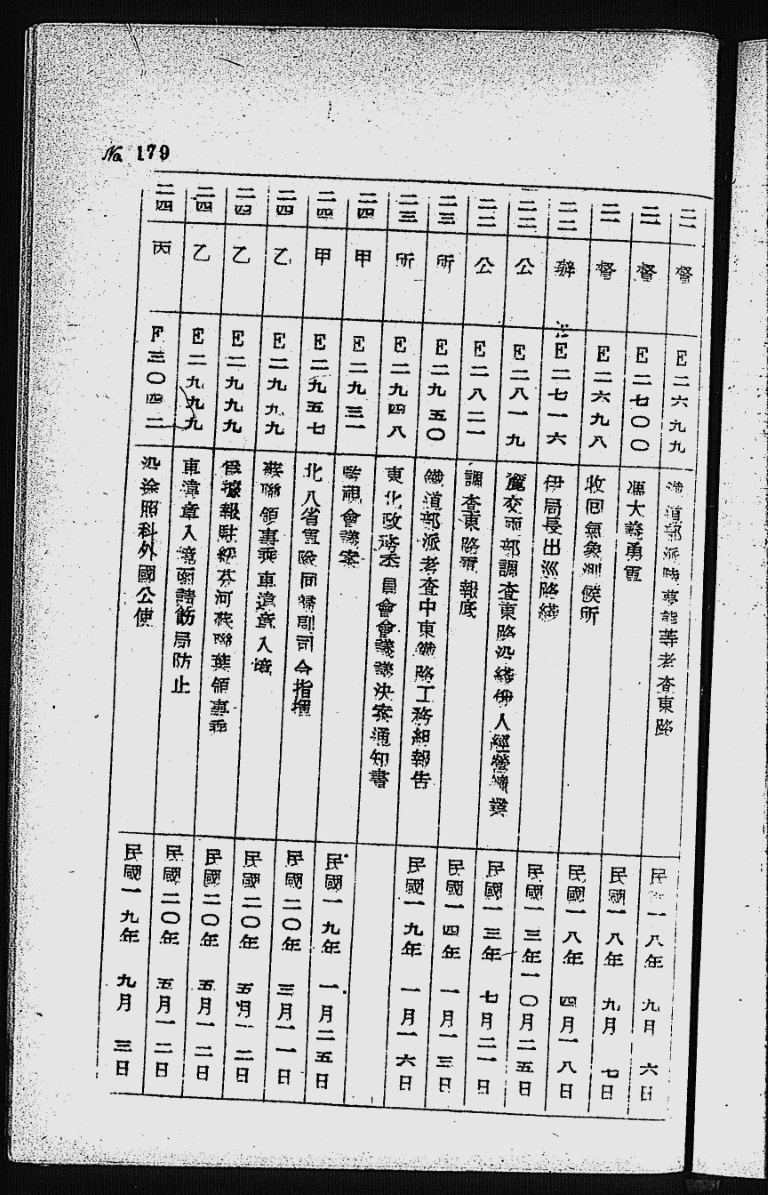 No. 179
二一 督 E二六九九 鐵道部派 等考查東路 民 一八年 九月 六日
二一 督 E二七〇〇 馮大 義勇軍 民國一八年 九月 七日
二一 督 E二六九八 收回氣象測候所 民國一八年 四月一八日
二二 辦 E二七一六 伊局長出巡路綫 民國一三年一〇月二五日
二二 公 E二八一九 交兩部調查東路沿綫 人經營 業 民國一三年 七月二一日
二二 公 E二八二一 調查東路電報底 民國一四年 一月一三日
二三 所 E二九五〇 鐵道部派考查中東鐵路工務組報告 民國一九年 一月一六日
二三 所 E二九四八 東北政務委員會會議議決案通知書
二四 甲 E二九三一 監視會議案 民國一九年 一月二五日
二四 甲 E二九五七 北八省軍 同 副司令指揮 民國二〇年 三月一一日
二四 乙 E二九九九 蘇聯領事乘車違章入境 民國二〇年 五月一二日
二四 乙 E二九九九 爲據報駐綏芬河蘇聯 領事乘 民國二〇年 五月一二日
二四 乙 E二九九九 車違章入境函請飭局防止 民國二〇年 五月一二日
二四 丙 F三〇四二 沿途照料外國公使 民國一九年 九月 三日